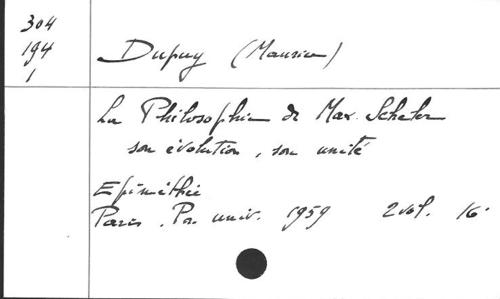 304
194
1
Dupuy (Maurice)
La Philosophie de Max Scheler
son évolution, son unité
Epiméthée
Paris. Pr. univ. 1959 2 vol. 16°